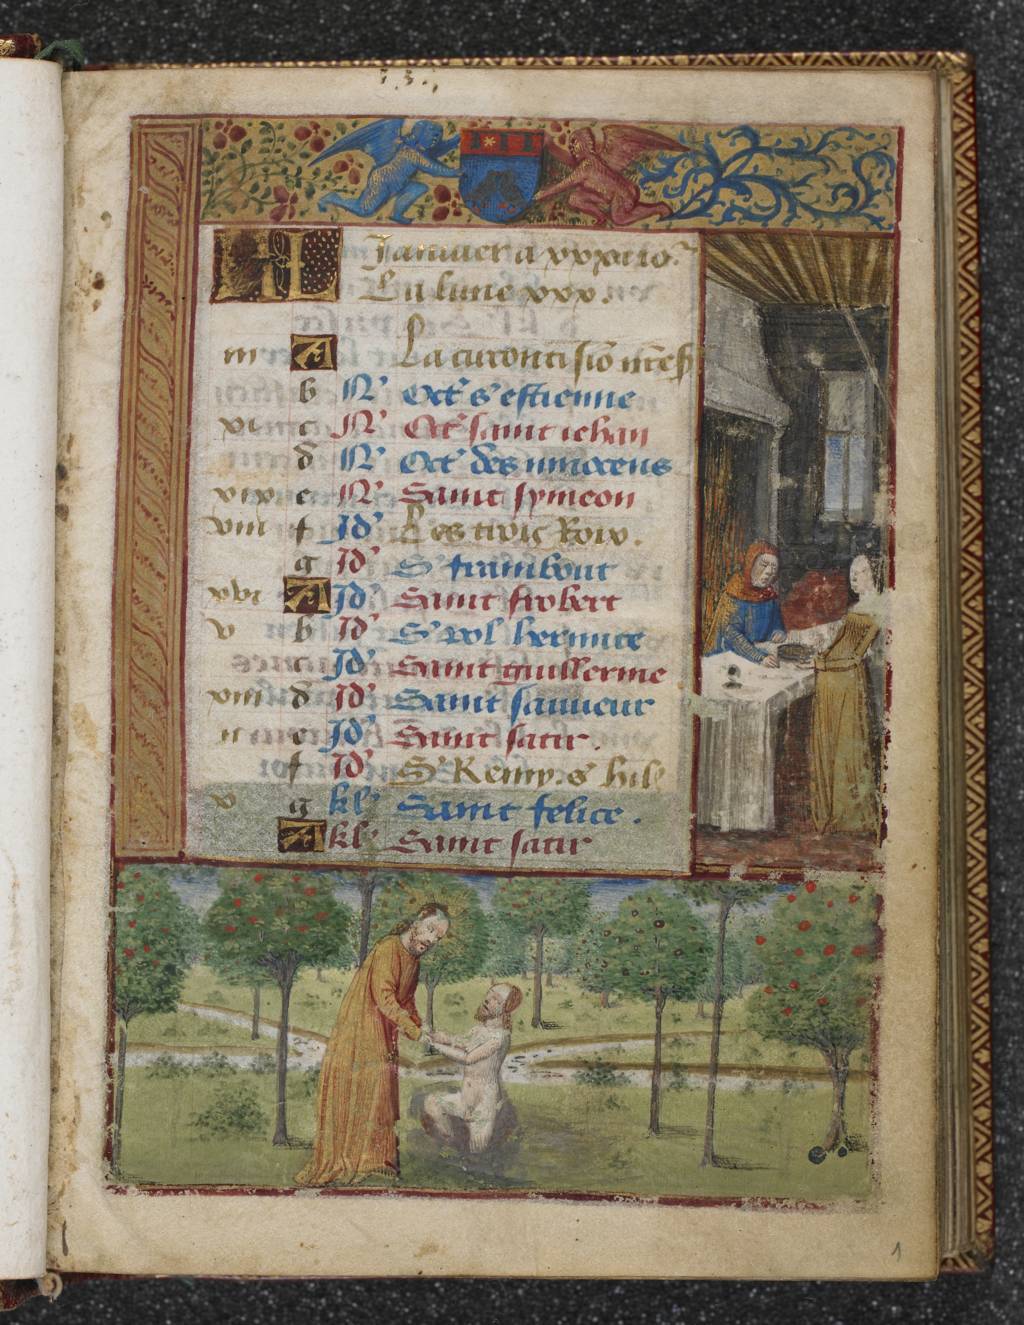 KL Januier a xxxi io.
La lune xxx.
iii A La circoncisio nr̄e sr̄
b N' Oct' s' estienne
xi c N' Oct' saint iehan
d N' Oct' des innocens
xix e N' Saint symeon
viii f Id' Les trois Roix.
g Id' S' frambout
xvi A Id' Saint frobert
v b Id' S'
c Id' Saint guillerme
xiii d Id' Saint sauueur
ii e Id' Saint satir.
f Id' S' Remy. s' hil
x g kl' Saint felice.
A kl' Saint satir
1